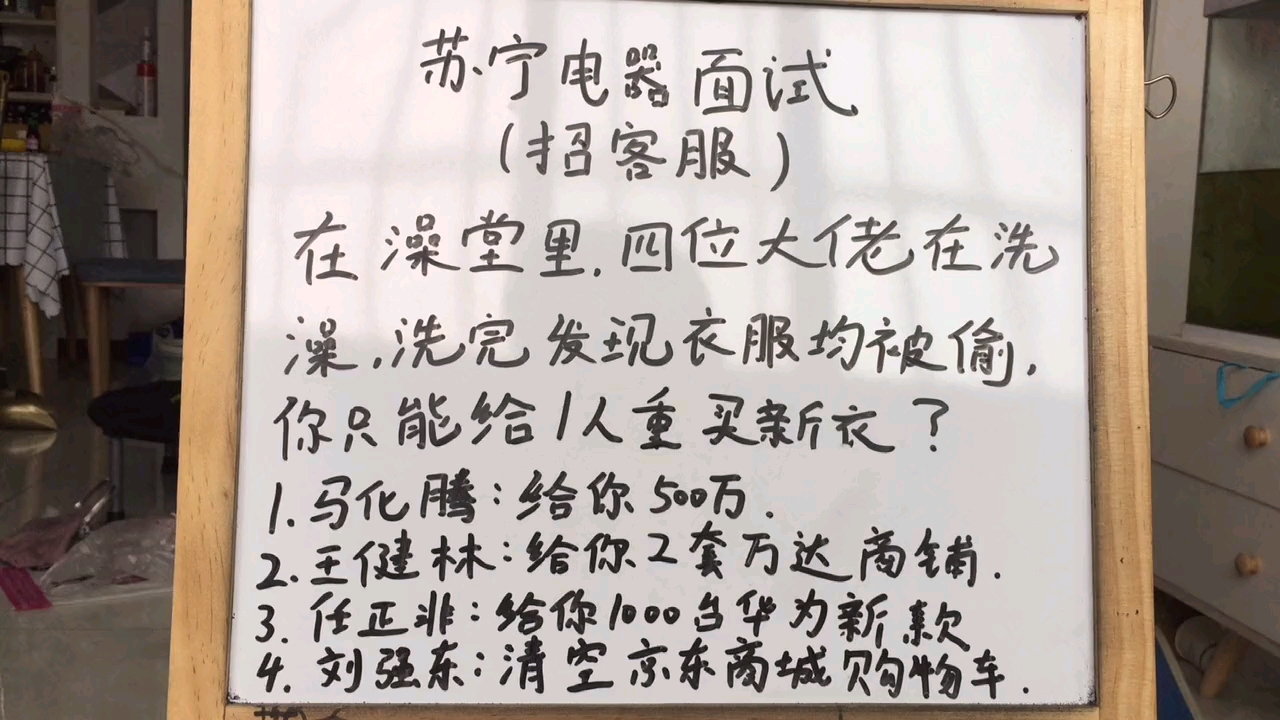 苏宁电器面试
(招客服)
在澡堂里.四位大佬在洗
澡,洗完发现衣服均被偷,
你只能给1人重买新衣?
1.马化腾:给你500万.
2.王健林:给你2套万达商铺.
3.任正非:给你1000台华为新款
4.刘强东:清空京东商城购物车.